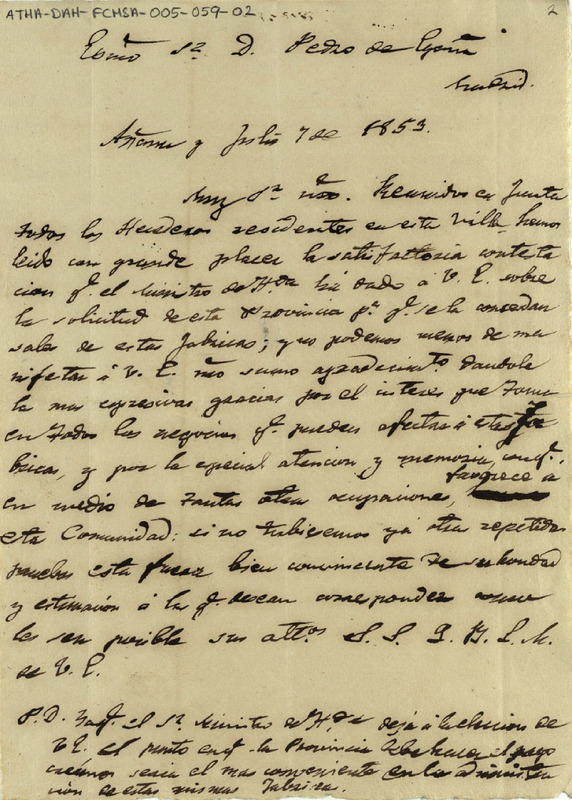 ATHA-DAH-FCMSA-005-059-02
2
Exmo Sr. D. Pedro de Egaña
Madrid.
Añana y Julio 7 de 1853.
Muy Sr. nro. Reunidos en Junta
todos los Herederos residentes en esta Villa hemos
leido con grande placer la satisfactoria contesta
cion qe. el Ministro de Hda ha dado á V. E. sobre
la solicitud de esta Provincia pa. qe. se la concedan
sales de estas Fabricas; y no podemos menos de ma
nifestar á V. E. nro sumo agradecimto dandole
la mas expresivas gracias por el interes que toma
en todos los negocios qe. pueden afectar á estas Fa
bricas, y por la especial atencion y memoria conqe.
favorece a
en medio de tantas otras ocupaciones,
esta Comunidad: si no tubiesemos ya otras repetidas
pruebas esta fuera bien convincente de su bondad
y estimacion á la qe. desean corresponder como
les sea posible sus attos. S. S. Q. B. S. M.
de V. E.
P. D. Ya qe. el Sr. Ministro de Hda deja á la eleccion de
V. E. el punto en qe. la Provincia debe hacer el pago
creemos seria el mas conveniente en la administra
cion de estas mismas Fabricas.